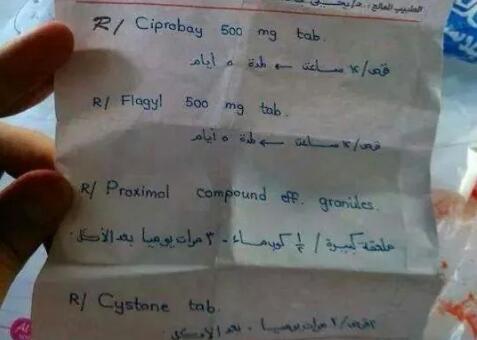 الطبيب المعالج : د/ يحيى
R/ Ciprobay 500 mg tab.
قرص/١٢ ساعة ← لمدة ٥ أيام
R/ Flagyl 500 mg tab.
قرص/١٢ ساعة ← لمدة ٥ أيام
R/ Proximol compound eff. granules.
ملعقة كبيرة / ½ كوب ماء - ٣ مرات يوميا بعد الأكل.
R/ Cystone tab.
مرات يوميا - بعد الأكل